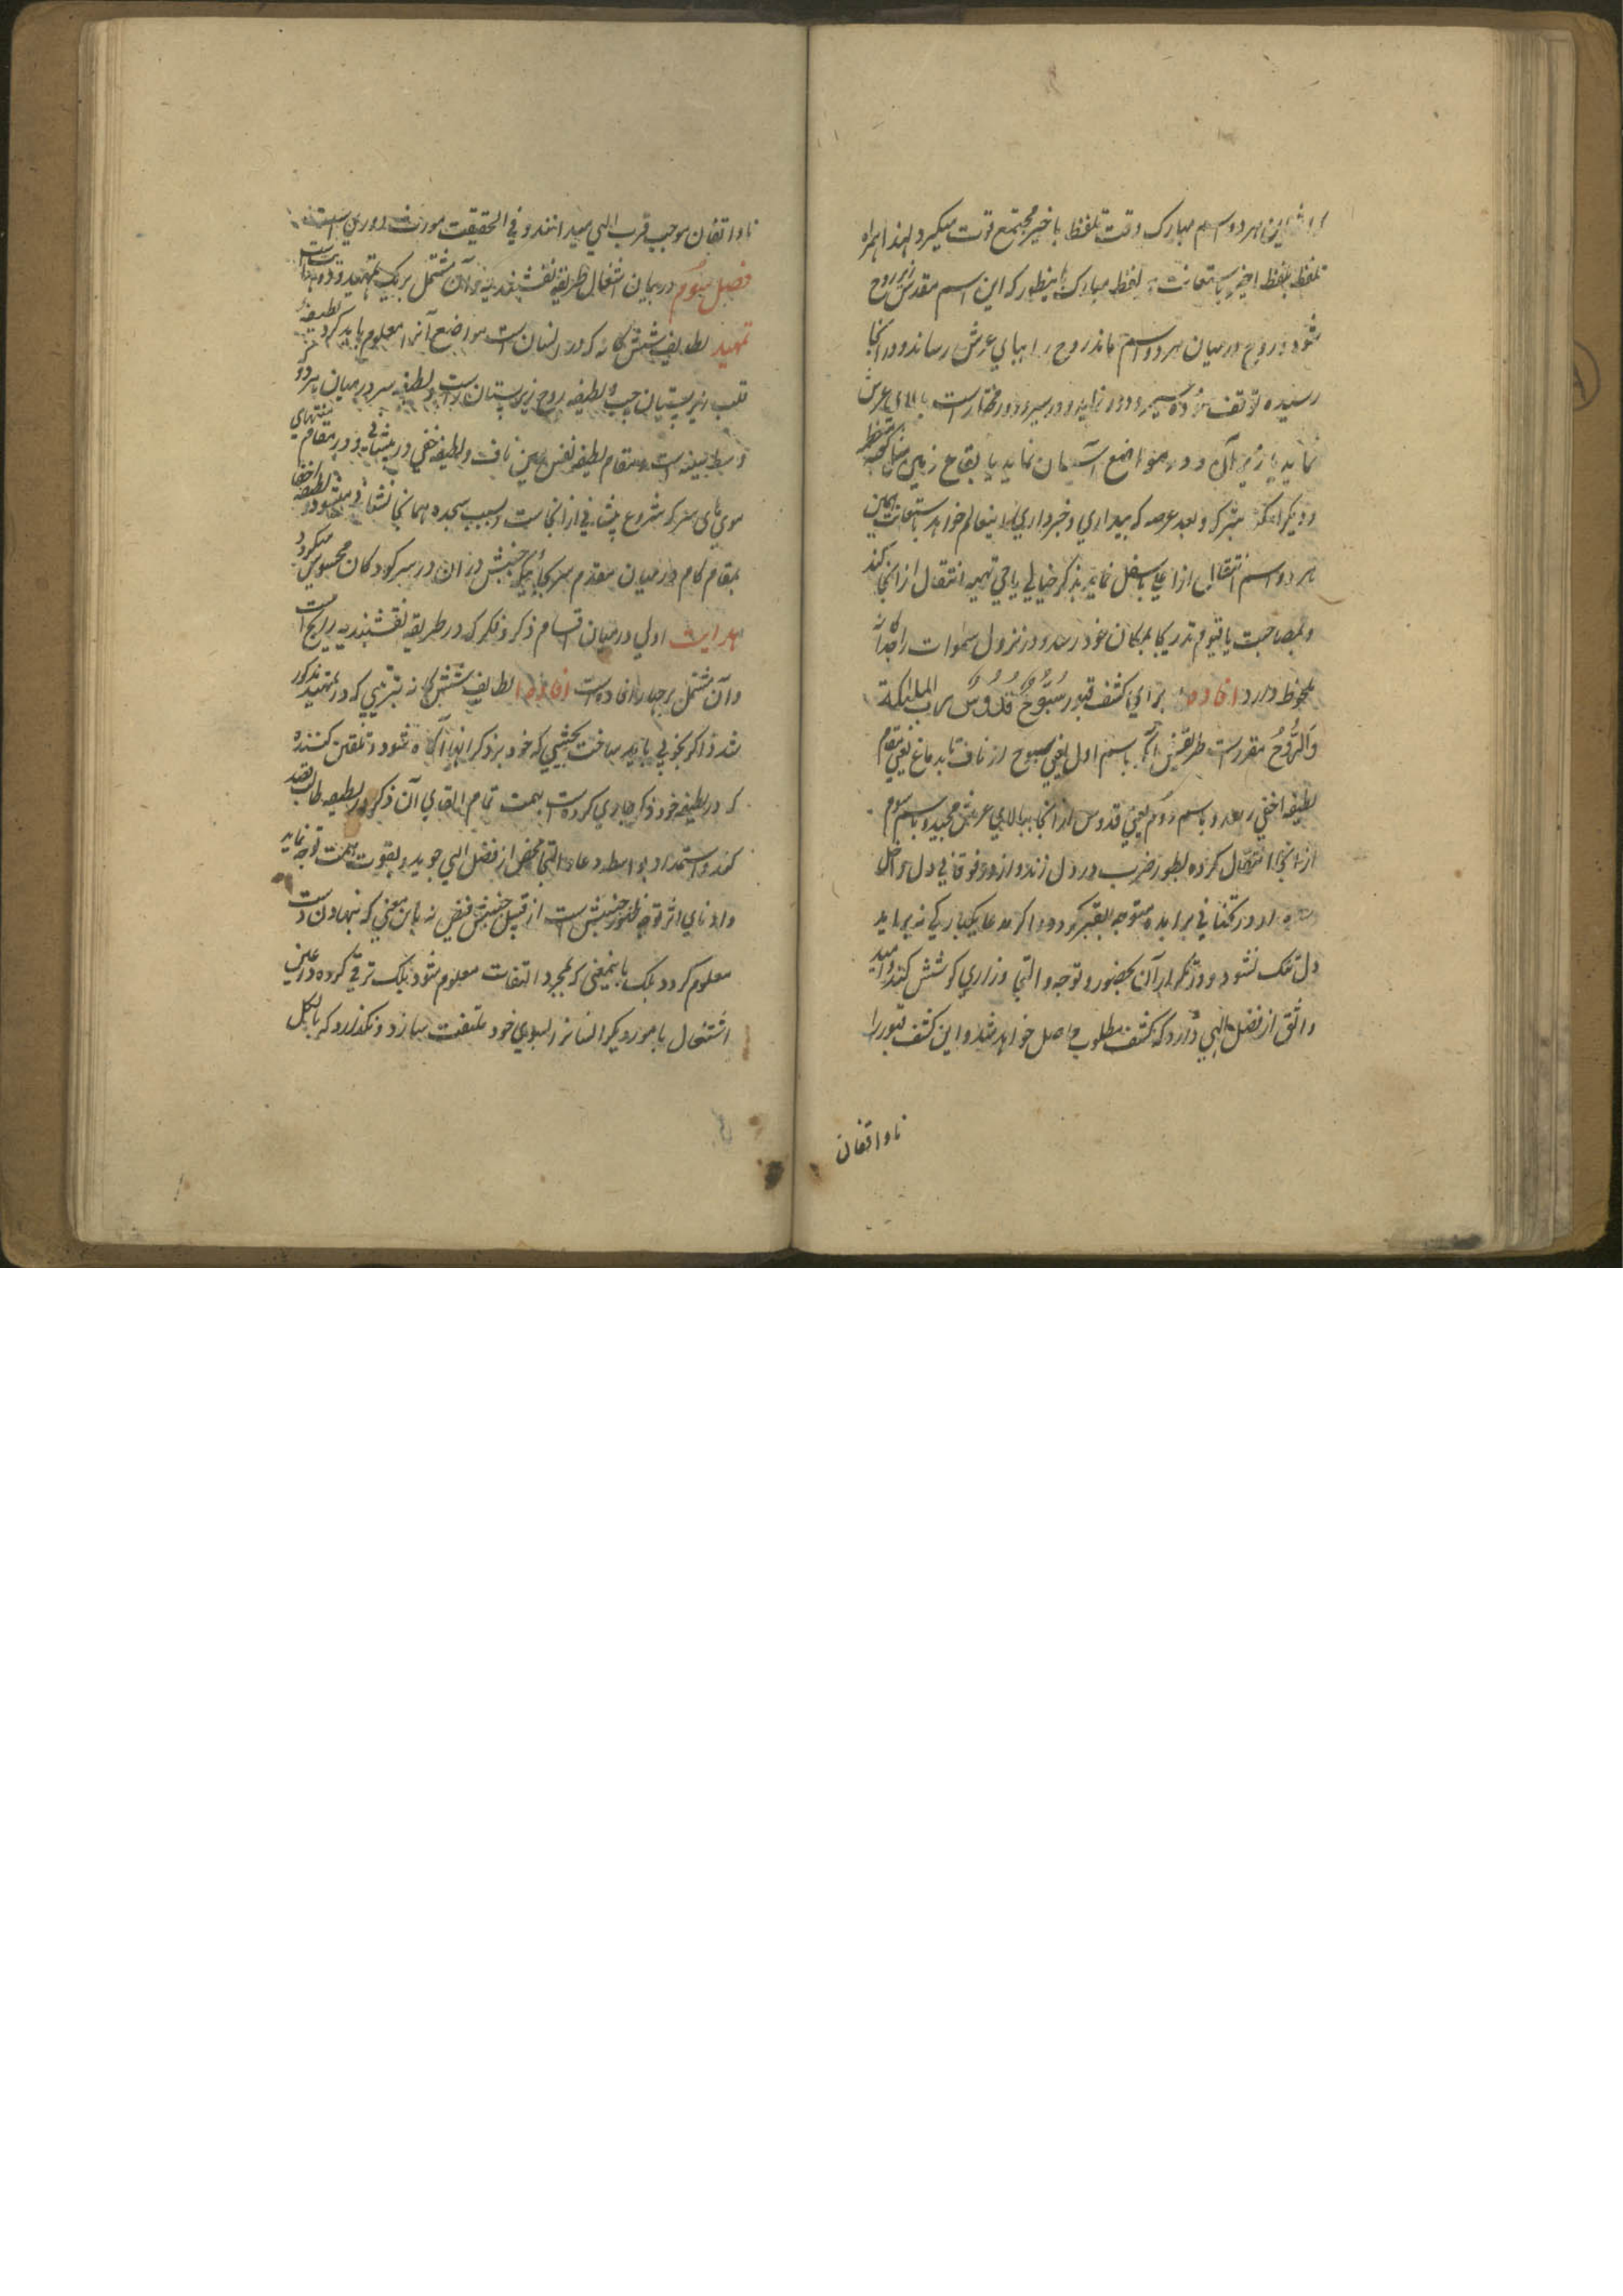 این هر دو اسم مبارک وقت تلفظ باخیر مجتمع قوت میگیرد لهذا همراه
تلفظ بلفظ اخیر باستعانت لفظ مبارک باینطور که این اسم مقدس زیر روح
شود و روح درمیان هر دو اسم ماند روح را ببالای عرش رساند و در آنجا
رسیده توقف نموده سیر و دور نماید و در سیر و دور مختار است بالای عرش
نماید یا زیر آن و در مواضع آسمان نماید یا بقاع زمین مثل کعبه معظمه
و دیگر اماکن متبرکه و بعد عرصه که بیداری و خبرداری اینعالم خواهد باستعانت همین
هر دو اسم انتقال از اعلی باسفل نماید بذکر خیالی یا حی تهیه انتقال از آنجا کند
و بمصاحبت یا قیوم تدریجا بمکان خود رسد و در نزول سموات را جداگانه
ملحوظ دارد افاده برای کشف قبور سُبُّوحٌ قُدُّوسٌ رب الملئکة
وَالرُّوحُ مقرر است طریقش آنکه باسم اول یعنی سبوح از ناف تا بدماغ یعنی مقام
لطیفه اخفی رسد و باسم دوم یعنی قدوس از آنجا ببالای عرش مجید و باسم سوم
از آنجا انتقال کرده بطور ضرب در دل زند و از در فوقانی دل داخل
شده از در تحتانی برآید متوجه بقبر گردد و اگر مدعا یکبارگی نه برآید
دل تنگ نشود و در تکرار آن بحضور و توجه و التجا و زاری کوشش کند و امید
واثق از فضل الهی دارد که کشف مطلوب حاصل خواهد شد و این کشف قبور را
ناواقفان
ناواقفان موجب قرب الهی میدانند و فی الحقیقت مورث دوری است
فصل سوم در بیان اشغال طریقه نقشبندیه و آن مشتمل بر یک تمهید و دو هدایت است
تمهید لطایف ششگانه که در انسان است مواضع آنرا معلوم باید کرد که لطیفه
قلب زیر پستان چپ و لطیفه روح زیر پستان راست و لطیفه سر درمیان هر دو که
وسط سینه است و مقام لطیفه نفس عین ناف و لطیفه خفی در پیشانی و در مقام منتهای
موی های سر که شروع پیشانی از آنجاست و بسبب سجده همانجا نشانی میشود و لطیفه اخفا
بمقام کام درمیان مقدم سر بجائیکه جنبش در آن در سر کودکان محسوس میگردد
هدایت اولی در بیان اقسام ذکر و فکر که در طریقه نقشبندیه رایج است
و آن مشتمل بر چهار افاده است افاده ۱ لطایف ششگانه بترتیبی که در تمهید مذکور
شد ذاکر بخوبی باید ساخت بحیثیتی که خود بر ذکر آنها آگاه شود و تلقین کننده
که در لطیفه خود ذکر جاری کرده است بهمت تمام القای آن ذکر در لطیفه طالب بقصد
کند و استمداد بواسطه دعا و التجا محض از فضل الهی جوید و بقوت همت توجه نماید
و ادنای اثر توجه ظهور جنبش است از قبیل جنبش نبض نه باین معنی که بنهادن دست
معلوم گردد بلکه باینمعنی که بمجرد التفات معلوم شود بلکه ترقی کرده در عین
اشتغال بامور دیگر انسان را بسوی خود ملتفت سازد و نگذارد که بالکل